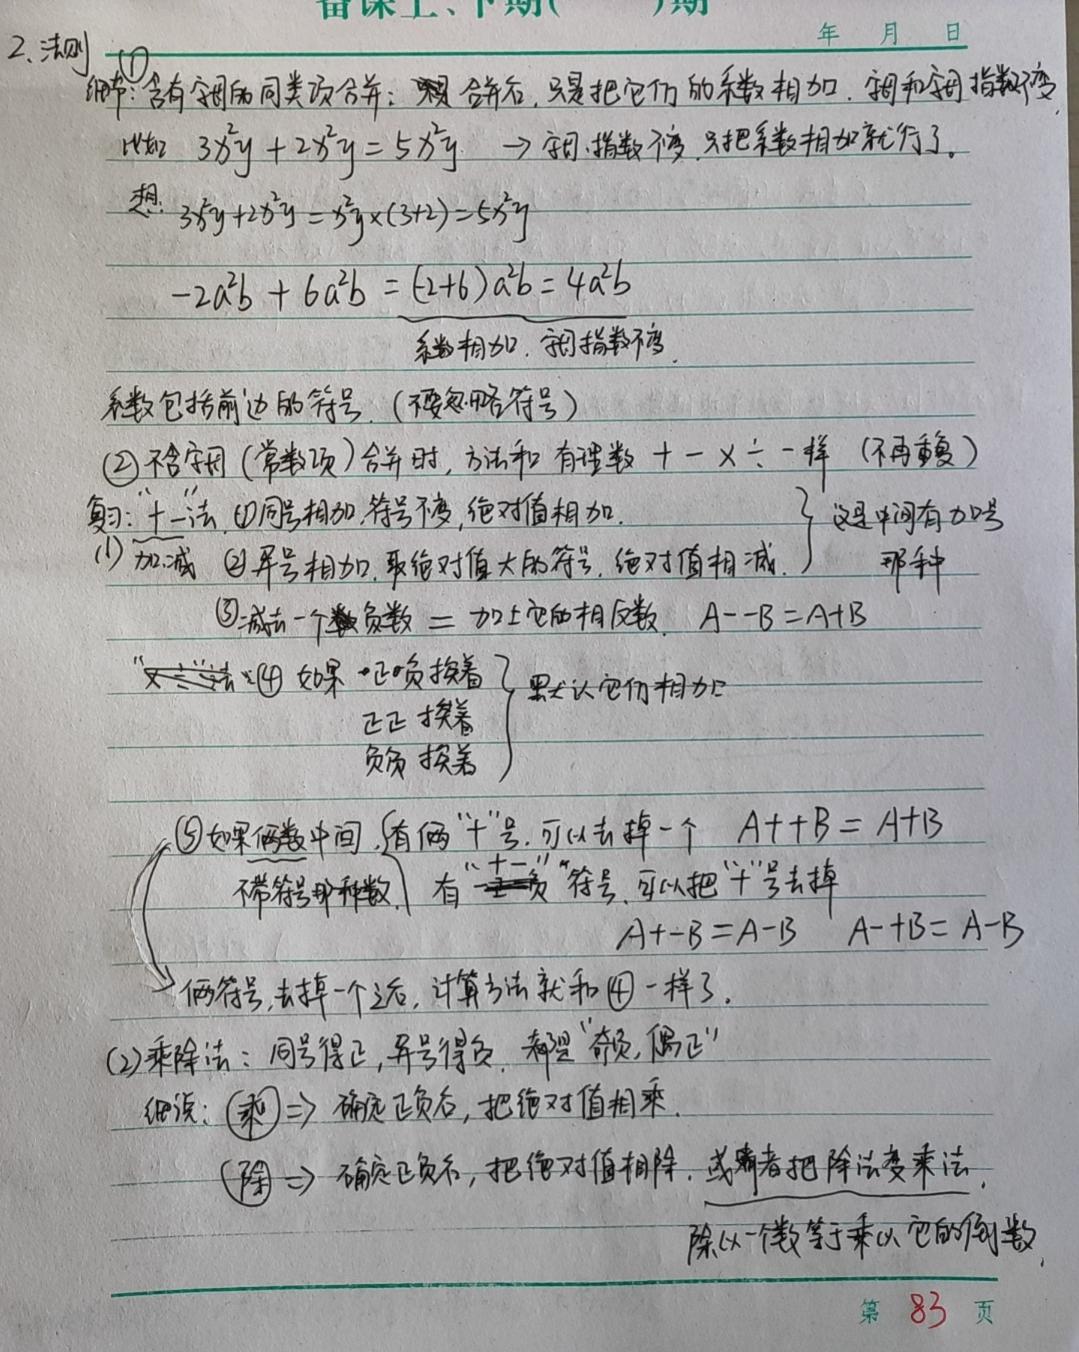 备课上、下期( )期
年 月 日
2、法则
① 细节：含有字母的同类项合并：合并后，只是把它们的系数相加，字母和字母指数不变，
比如 3x²y + 2x²y = 5x²y → 字母、指数不变，只把系数相加就行了。
想：3x²y+2x²y = x²y×(3+2) = 5x²y
-2a²b + 6a²b = (-2+6)a²b = 4a²b
系数相加，字母指数不变，
系数包括前边的符号，(不要忽略符号)
② 不含字母(常数项)合并时，方法和有理数 + - × ÷ 一样 (不再重复)
复习："+ -"法 ①同号相加，符号不变，绝对值相加，
(1) 加减 ②异号相加，取绝对值大的符号，绝对值相减，
这是中间有加号
那种
③减去一个负数 = 加上它的相反数，A--B=A+B
④ 如果 正负挨着
正正挨着
负负挨着
默认它们相加
⑤如果俩数中间，有俩"+"号，可以去掉一个 A++B = A+B
不带符号那种数， 有"+-"符号，可以把"+"号去掉
A+-B=A-B A-+B=A-B
俩符号，去掉一个之后，计算方法就和④一样了，
(2)乘除法：同号得正，异号得负，都是"奇负，偶正"
细说：乘 => 确定正负后，把绝对值相乘，
除 => 确定正负后，把绝对值相除，或者把除法变乘法，
除以一个数等于乘以它的倒数，
第 83 页